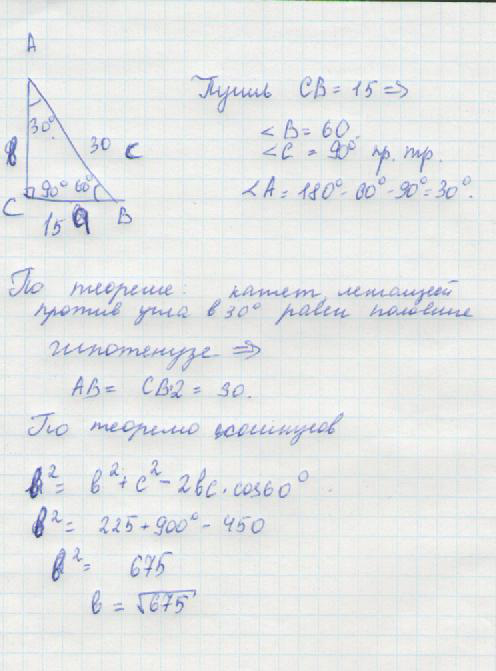 A
30°
Пусть CB = 15 =>
в 30 c
∠B = 60.
∠C = 90° пр. тр.
C 90° 60° B
∠A = 180° - 60° - 90° = 30°.
15 a
По теореме: катет лежащей
против угла в 30° равен половине
гипотенузе =>
AB = CB·2 = 30.
По теоремо косинусов
в² = в² + c² - 2вc · cos60°
в² = 225 + 900° - 450
в² = 675
в = √675